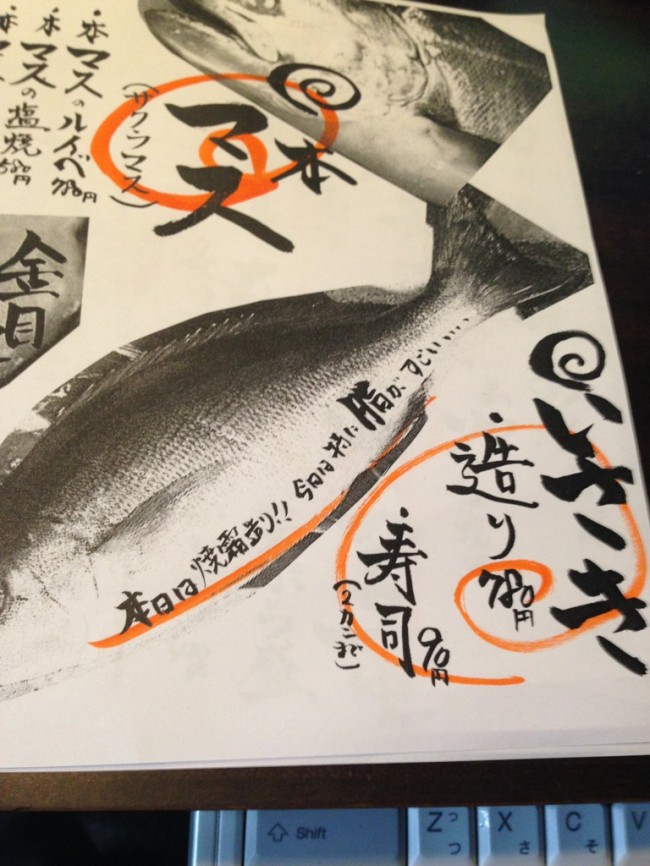 いさき
・造り 780円
・寿司 90円
(2カンまで)
本日は焼霜造り!! 今日は特に脂がすごいい...
本マス
(サクラマス)
・本マスのルイベ 780円
・本マスの塩焼 580円
金目
Shift
Z っ つ
X さ
C そ
V